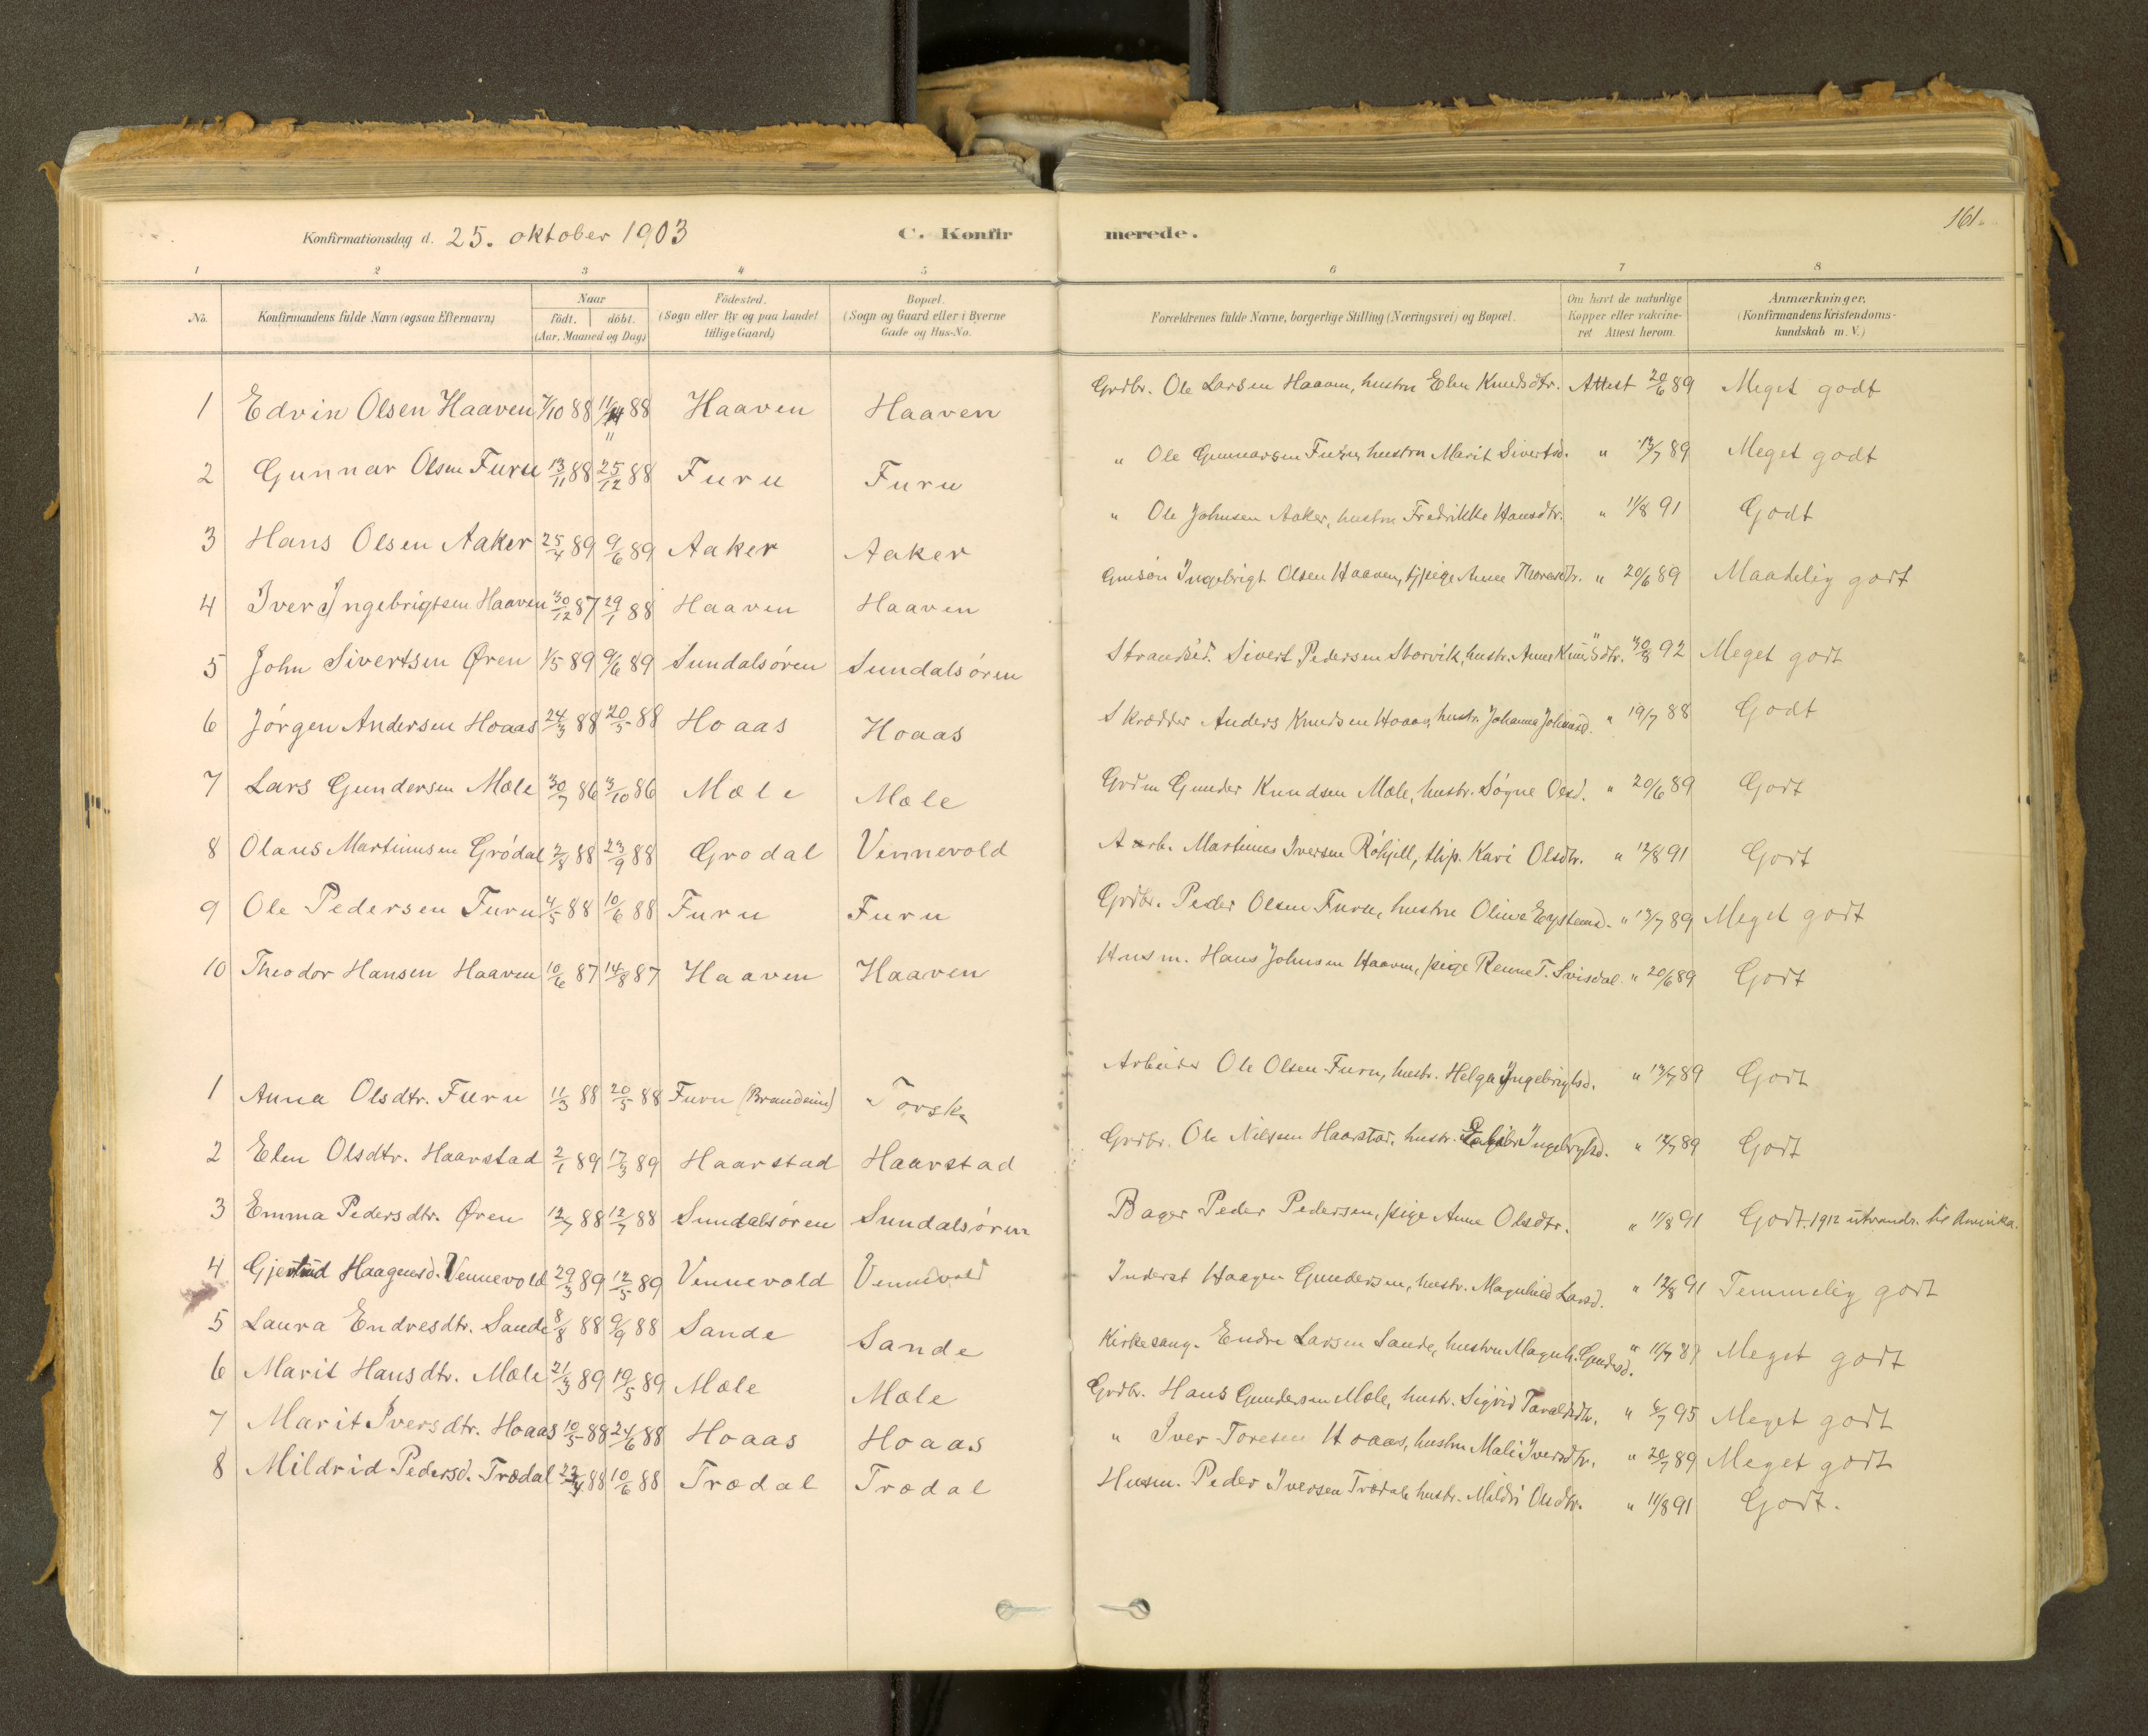 Konfirmationsdag d. 25. oktober 1903 C. Konfirmerede. 161.
1 2 3 4 5 6 7 8
No. Konfirmandens fulde Navn (ogsaa Efternavn) Naar födt. döbt. (Aar, Maaned og Dag) Födested. (Sogn eller By og paa Landet tillige Gaard) Bopæl. (Sogn og Gaard eller i Byerne Gade og Hus-No. Forældrenes fulde Navne, borgerlige Stilling (Næringsvei) og Bopæl. Om havt de naturlige Kopper eller vaccineret Attest herom. Anmærkninger. (Konfirmandens Kristendomskundskab m. V.)
1 Edvin Olsen Haaven 7/10 88 11/11 88 Haaven Haaven Grdbr. Ole Larsen Haaven, hustru Elen Knudsdtr. Attest 20/6 89 Meget godt
2 Gunnar Olsen Furu 13/11 88 25/12 88 Furu Furu " Ole Gunnarsen Furu, hustru Marit Sivertsd. " 13/7 89 Meget godt
3 Hans Olsen Aaker 25/4 89 9/6 89 Aaker Aaker " Ole Johnsen Aaker, hustru Fredrikke Hansdtr. " 11/8 91 Godt
4 Iver Ingebrigtsen Haaven 30/12 87 29/1 88 Haaven Haaven Gmsøn Ingebrigt Olsen Haaven, tj.pige Anne Thoresdtr. " 20/6 89 Maadelig godt
5 John Sivertsen Øren 1/5 89 9/6 89 Sundalsøren Sundalsøren Strandsid. Sivert Pedersen Storvik, hustr. Anne Knudsdtr. " 30/8 92 Meget godt
6 Jörgen Andersen Hoaas 24/3 88 20/5 88 Hoaas Hoaas Skrædder Anders Knudsen Hoaas, hustr. Johanna Johnsd. " 19/7 88 Godt
7 Lars Gundersen Mæle 30/7 86 3/10 86 Mæle Mæle Grdm Gunder Knudsen Mæle, hustr. Søgne Olsd. " 20/6 89 Godt
8 Olaus Martinusen Grødal 2/8 88 23/9 88 Grodal Vennevold Arb. Martinus Iversen Röhjell, tjp. Kari Olsdtr. " 12/8 91 Godt
9 Ole Pedersen Furu 4/5 88 10/6 88 Furu Furu Grdbr. Peder Olsen Furu, hustru Olive Eystensd. " 13/7 89 Meget godt
10 Theodor Hansen Haaven 10/6 87 14/8 87 Haaven Haaven Husm. Hans Johnsen Haaven, pige Renne T. Svisdal " 20/6 89 Godt
1 Anna Olsdtr. Furu 11/3 88 20/5 88 Furu Torske Arbeider Ole Olsen Furu, hustr. Helga Ingebrigtsd. " 13/7 89 Godt
2 Elen Olsdtr. Haarstad 2/1 89 17/3 89 Haarstad Haarstad Grdbr. Ole Nilsen Haarstad, hustr. Ingebrigtsd. " 12/7 89 Godt
3 Emma Pedersdtr. Øren 12/7 88 12/7 88 Sundalsøren Sundalsøren Bager Peder Pedersen, pige Anne Olsdtr. " 11/8 91 Godt. 1912 utvandr. til Amerika.
4 Gjertrud Haagensd. Vennevold 29/3 89 12/5 89 Vennevold Vennevold Inderst Haagen Gundersen, hustr. Magnhild Larsd. " 12/8 91 Temmelig godt
5 Laura Endresdtr. Sande 8/8 88 9/9 88 Sande Sande Kirkesang. Endre Larsen Sande, hustru Magnh. Gundersd. " 11/7 89 Meget godt
6 Marit Hansdtr. Mæle 21/3 89 19/5 89 Mæle Mæle Grdbr. Hans Gundersen Mæle, hustr. Sigrid Tavaldsdtr. " 6/7 95 Meget godt
7 Marit Iversdtr. Hoaas 10/5 88 24/6 88 Hoaas Hoaas " Iver Toresen Hoaas, hustru Mali Iversdtr. " 20/7 89 Meget godt
8 Mildrid Pedersd. Trædal 23/4 88 10/6 88 Trædal Trædal Husm. Peder Iversen Trædal, hustr. Mildri Olsdtr. " 11/8 91 Godt.